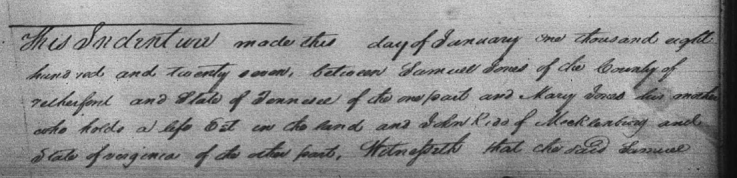 This Indenture made this day of January one thousand eight
hundred and twenty seven, between Samuel Jones of the County of
retherford and State of Tennesee of the one part and Mary Jones his mother
who holds a life Est in the land and John Kidd of Mecklenburg and
State of virginea of the other part, Witnesseth that the said Samuel